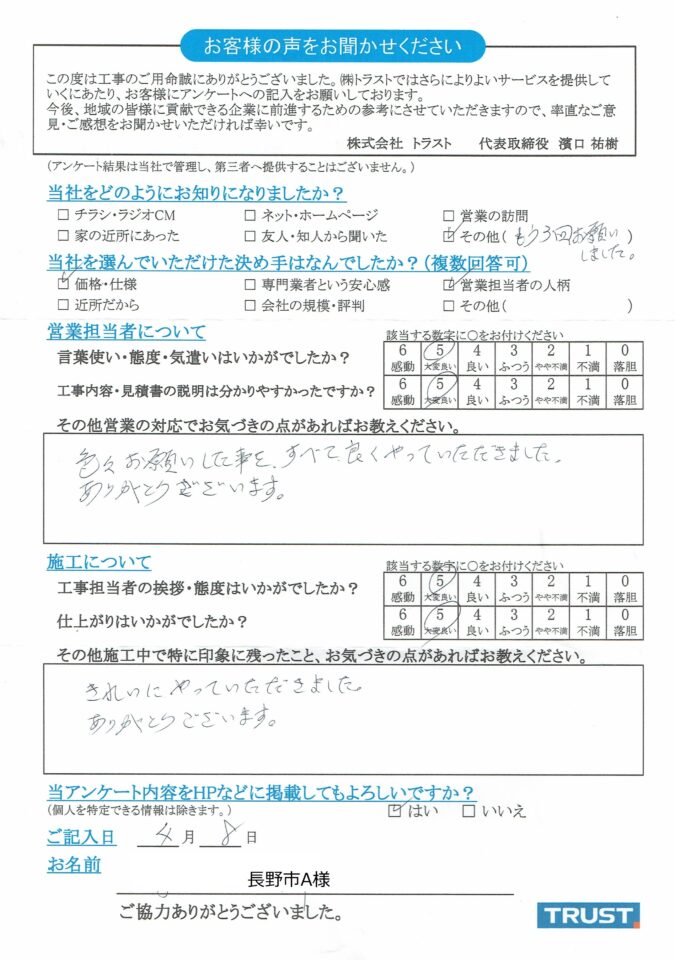 お客様の声をお聞かせください
この度は工事のご用命誠にありがとうございました。㈱トラストではさらによりよいサービスを提供して
いくにあたり、お客様にアンケートへの記入をお願いしております。
今後、地域の皆様に貢献できる企業に前進するための参考にさせていただきますので、率直なご意
見・ご感想をお聞かせいただければ幸いです。
株式会社 トラスト 代表取締役 濱口 祐樹
(アンケート結果は当社で管理し、第三者へ提供することはございません。)
当社をどのようにお知りになりましたか？
□ チラシ・ラジオCM □ ネット・ホームページ □ 営業の訪問
□ 家の近所にあった □ 友人・知人から聞いた ☑ その他( もう3回お願い )
しました。
当社を選んでいただけた決め手はなんでしたか？(複数回答可)
☑ 価格・仕様 □ 専門業者という安心感 ☑ 営業担当者の人柄
□ 近所だから □ 会社の規模・評判 □ その他( )
営業担当者について 該当する数字に○をお付けください
言葉使い・態度・気遣いはいかがでしたか？ 6 5 4 3 2 1 0
感動 大変良い 良い ふつう やや不満 不満 落胆
工事内容・見積書の説明は分かりやすかったですか？ 6 5 4 3 2 1 0
感動 大変良い 良い ふつう やや不満 不満 落胆
その他営業の対応でお気づきの点があればお教えください。
色々お願いした事を、すべて良くやっていただきました。
ありがとうございます。
施工について 該当する数字に○をお付けください
工事担当者の挨拶・態度はいかがでしたか？ 6 5 4 3 2 1 0
感動 大変良い 良い ふつう やや不満 不満 落胆
仕上がりはいかがでしたか？ 6 5 4 3 2 1 0
感動 大変良い 良い ふつう やや不満 不満 落胆
その他施工中で特に印象に残ったこと、お気づきの点があればお教えください。
きれいにやっていただきました。
ありがとうございます。
当アンケート内容をHPなどに掲載してもよろしいですか？
(個人を特定できる情報は除きます。) ☑ はい □ いいえ
ご記入日 4 月 8 日
お名前
長野市A様
ご協力ありがとうございました。
TRUST.